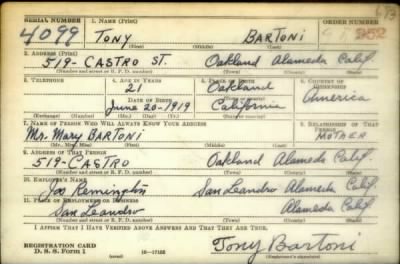 683
SERIAL NUMBER 1. NAME (Print) ORDER NUMBER
4099 TONY BARTONI 252
(First) (Middle) (Last)
2. ADDRESS (Print)
519- CASTRO ST. Oakland Alameda Calif.
(Number and street or R. F. D. number) (Town) (County) (State)
3. TELEPHONE 4. AGE IN YEARS 5. PLACE OF BIRTH 6. COUNTRY OF CITIZENSHIP
21 Oakland
DATE OF BIRTH (Town or county)
June 20-1919 California America
(Exchange) (Number) (Mo.) (Day) (Yr.) (State or country)
7. NAME OF PERSON WHO WILL ALWAYS KNOW YOUR ADDRESS 8. RELATIONSHIP OF THAT PERSON
Mr. Mary BARTONI MOTHER
(Mr., Mrs., Miss) (First) (Middle) (Last)
9. ADDRESS OF THAT PERSON
519-CASTRO Oakland Alameda Calif.
(Number and street or R. F. D. number) (Town) (County) (State)
10. EMPLOYER'S NAME
Joe Remington San Leandro Alameda Calif.
11. PLACE OF EMPLOYMENT OR BUSINESS
San Leandro Alameda Calif.
(Number and street or R. F. D. number) (Town) (County) (State)
I AFFIRM THAT I HAVE VERIFIED ABOVE ANSWERS AND THAT THEY ARE TRUE.
REGISTRATION CARD
D. S. S. FORM 1 16-17105 Tony Bartoni
(over) (Registrant's signature)